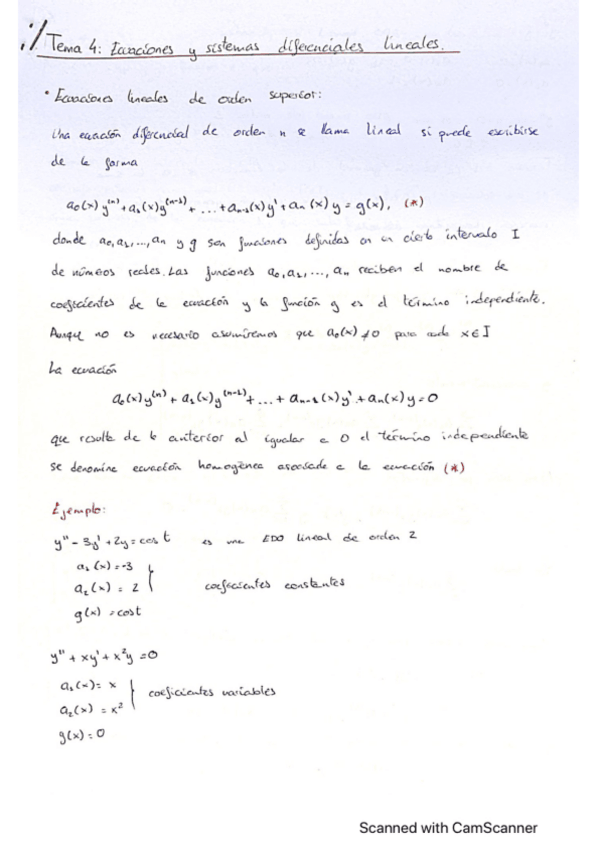 Tema 4: Ecuaciones y sistemas diferenciales lineales.
• Ecuaciones lineales de orden superior:
Una ecuación diferencial de orden n se llama lineal si puede escribirse
de la forma
a₀(x) y⁽ⁿ⁾ + a₁(x) y⁽ⁿ⁻¹⁾ + ... + aₙ₋₁(x) y' + aₙ(x) y = g(x), (*)
donde a₀, a₁, ..., aₙ y g son funciones definidas en un cierto intervalo I
de números reales. Las funciones a₀, a₁, ..., aₙ reciben el nombre de
coeficientes de la ecuación y la función g es el término independiente.
Aunque no es necesario asumiremos que a₀(x) ≠ 0 para cada x ∈ I
La ecuación
a₀(x) y⁽ⁿ⁾ + a₁(x) y⁽ⁿ⁻¹⁾ + ... + aₙ₋₁(x) y' + aₙ(x) y = 0
que resulta de la anterior al igualar a 0 el término independiente
se denomina ecuación homogénea asociada a la ecuación (*)
Ejemplo:
y'' - 3y' + 2y = cos t es una EDO lineal de orden 2
a₁(x) = -3
a₂(x) = 2 coeficientes constantes
g(x) = cos t
y'' + xy' + x²y = 0
a₁(x) = x
a₂(x) = x² coeficientes variables
g(x) = 0
Scanned with CamScanner